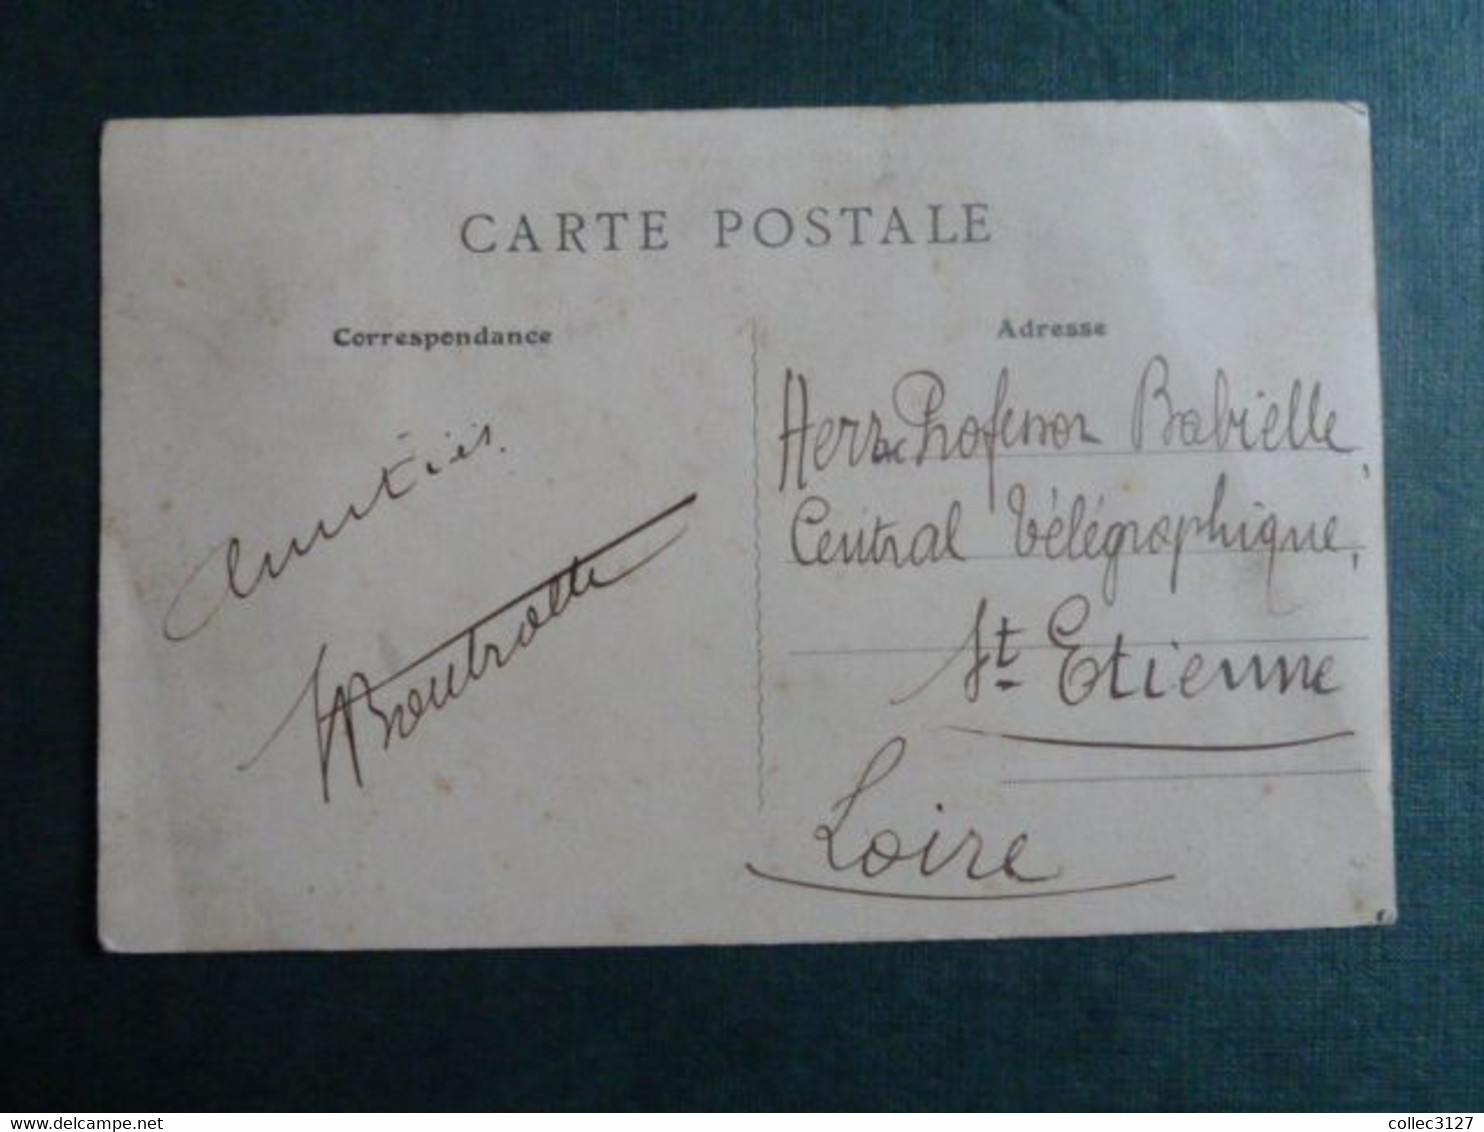 CARTE POSTALE
Correspondance
Amitiés.
Boutrolle
Adresse
Herr Professor Babielle
Central Télégraphique,
St. Etienne
Loire
delcampe.net
collec3127